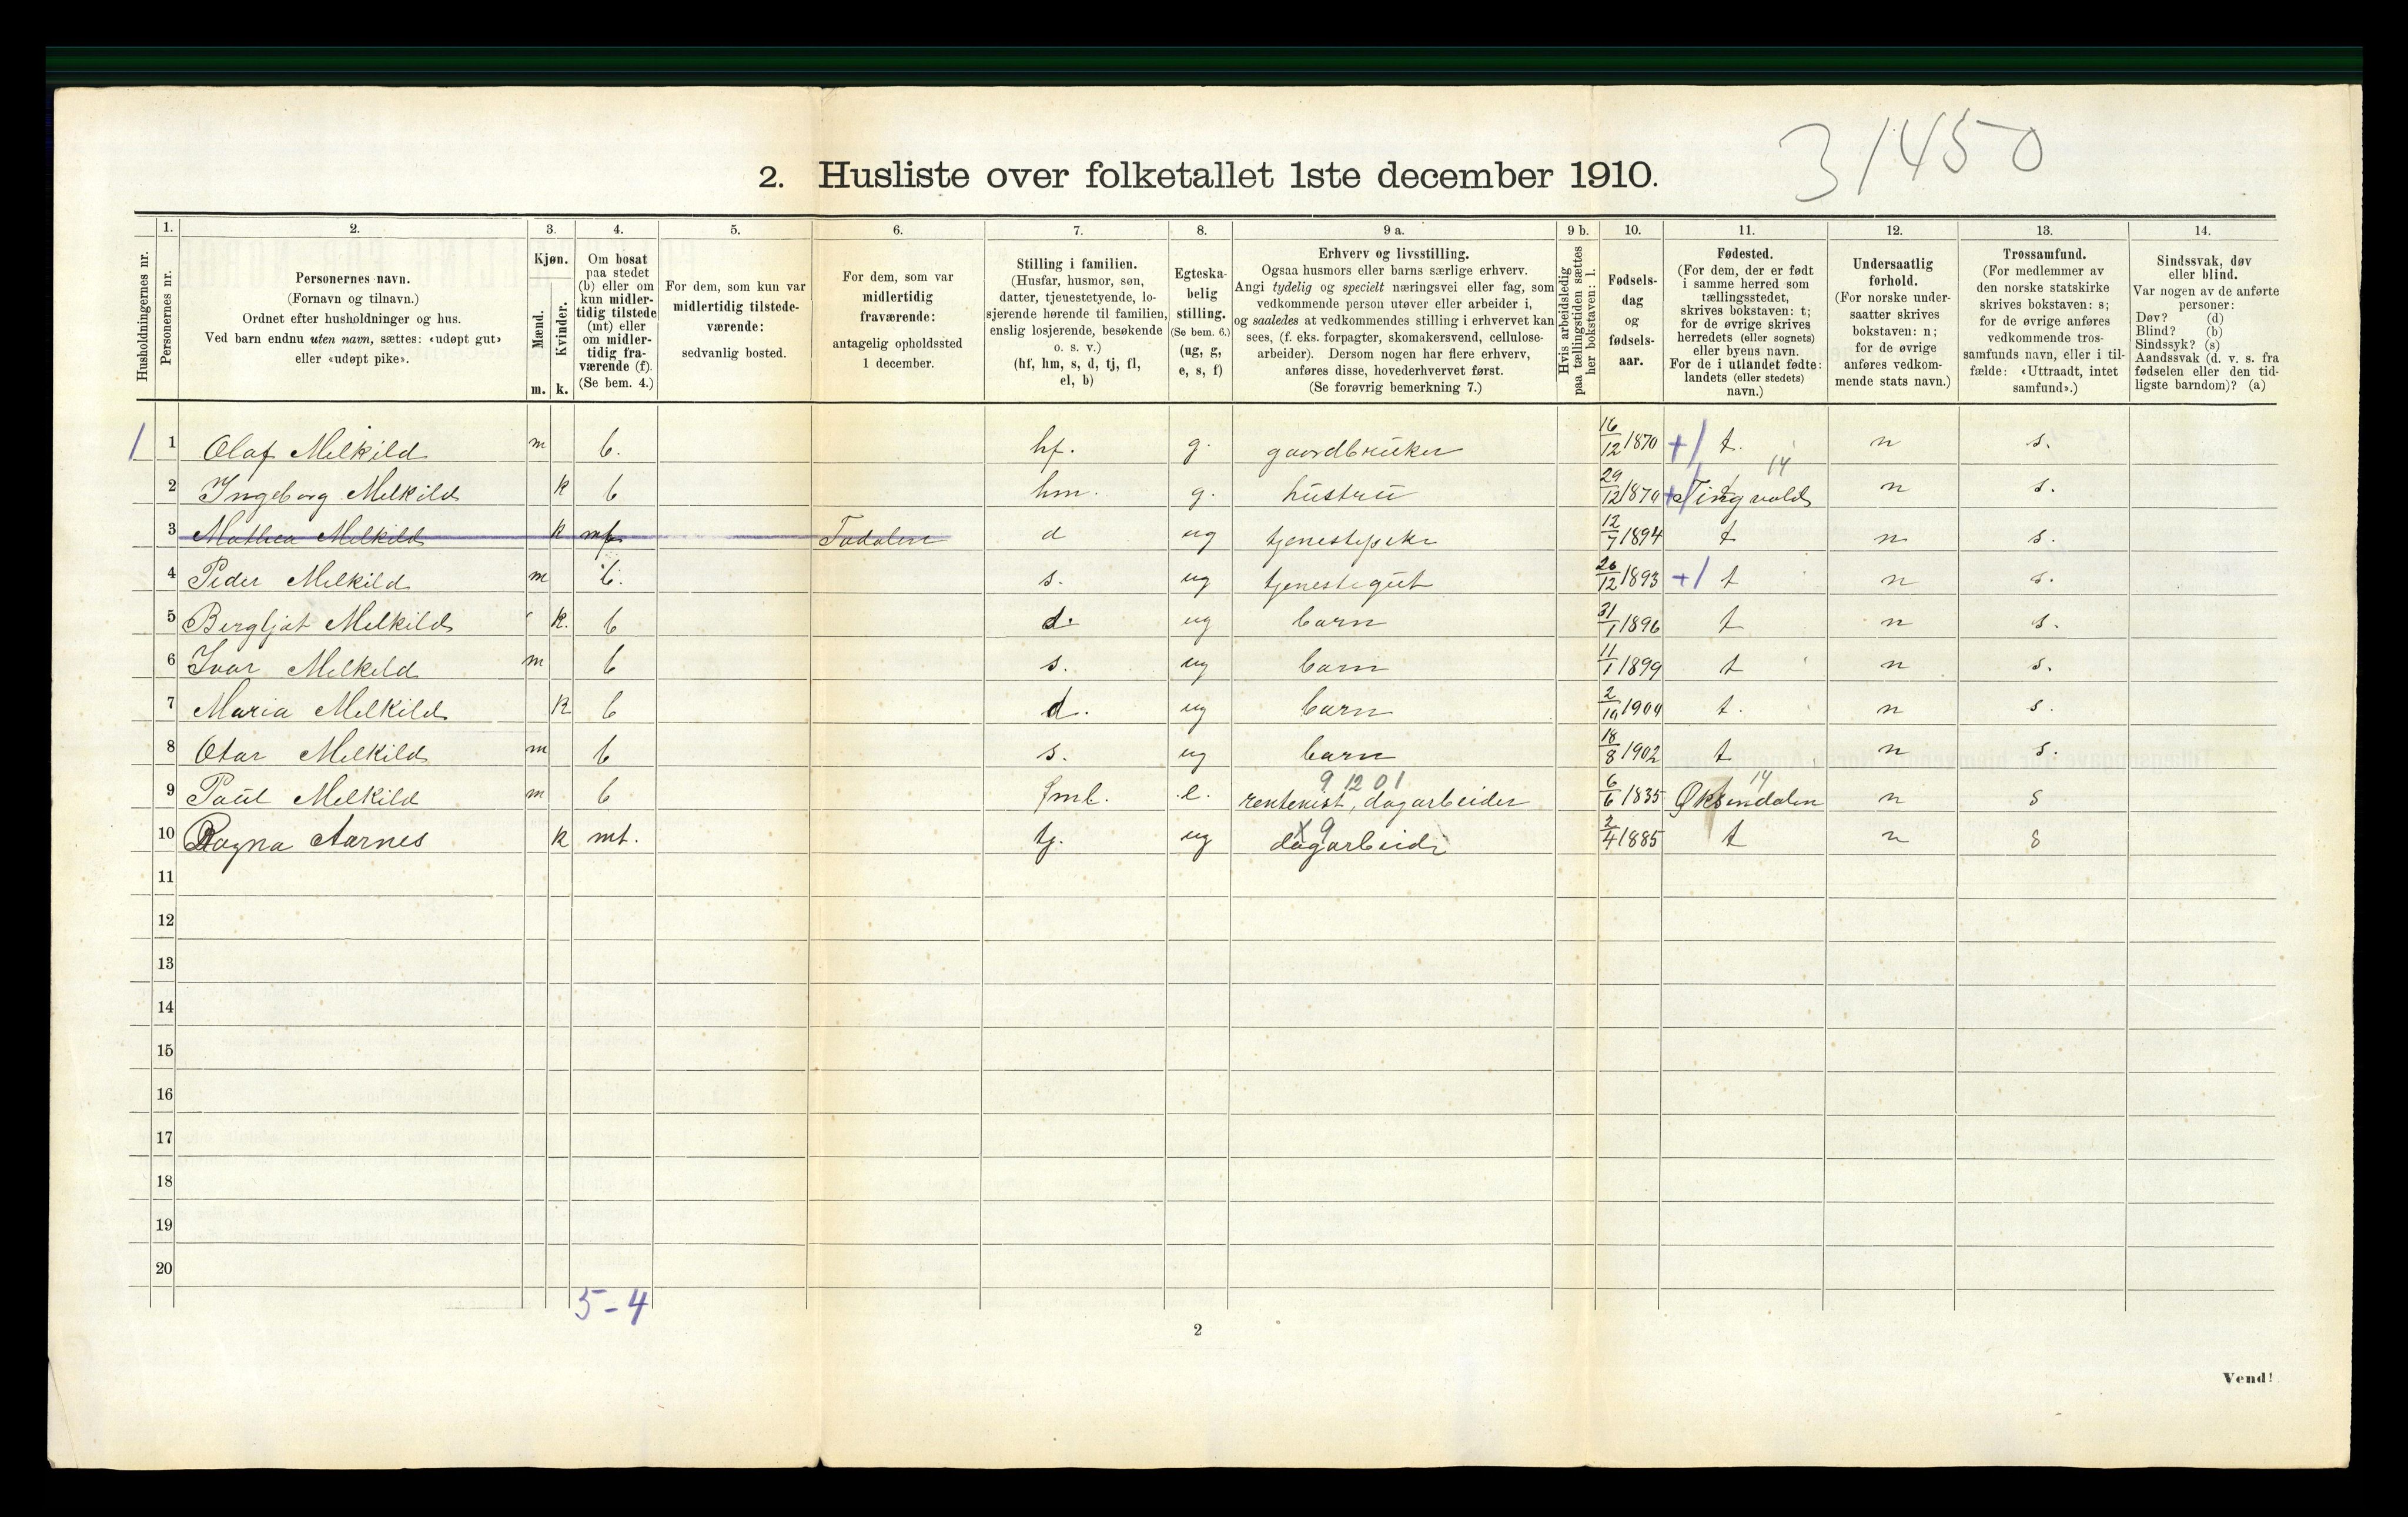 31450
2. Husliste over folketallet 1ste december 1910.
Husholdningernes nr.
1.
Personernes nr.
2.
Personernes navn.
(Fornavn og tilnavn.)
Ordnet efter husholdninger og hus.
Ved barn endnu uten navn, sættes: «udøpt gut»
eller «udøpt pike».
3.
Kjøn.
Mænd.
m.
Kvinder.
k.
4.
Om bosat
paa stedet
(b) eller om
kun midler-
tidig tilstede
(mt) eller
om midler-
tidig fra-
værende (f).
(Se bem. 4.)
5.
For dem, som kun var
midlertidig tilstede-
værende:
sedvanlig bosted.
6.
For dem, som var
midlertidig
fraværende:
antagelig opholdssted
1 december.
7.
Stilling i familien.
(Husfar, husmor, søn,
datter, tjenestetyende, lo-
sjerende hørende til familien,
enslig losjerende, besøkende
o. s. v.)
(hf, hm, s, d, tj, fl,
el, b)
8.
Egteska-
belig
stilling.
(Se bem. 6.)
(ug, g,
e, s, f)
9 a.
Erhverv og livsstilling.
Ogsaa husmors eller barns særlige erhverv.
Angi tydelig og specielt næringsvei eller fag, som
vedkommende person utøver eller arbeider i,
og saaledes at vedkommendes stilling i erhvervet kan
sees, (f. eks. forpagter, skomakersvend, cellulose-
arbeider). Dersom nogen har flere erhverv,
anføres disse, hovederhvervet først.
(Se forøvrig bemerkning 7.)
9 b.
Hvis arbeidsledig
paa tællingstiden sættes
her bokstaven: l.
10.
Fødsels-
dag
og
fødsels-
aar.
11.
Fødested.
(For dem, der er født
i samme herred som
tællingsstedet,
skrives bokstaven: t;
for de øvrige skrives
herredets (eller sognets)
eller byens navn.
For de i utlandet fødte:
landets (eller stedets)
navn.)
12.
Undersaatlig
forhold.
(For norske under-
saatter skrives
bokstaven: n;
for de øvrige
anføres vedkom-
mende stats navn.)
13.
Trossamfund.
(For medlemmer av
den norske statskirke
skrives bokstaven: s;
for de øvrige anføres
vedkommende tros-
samfunds navn, eller i til-
fælde: «Uttraadt, intet
samfund».)
14.
Sindssvak, døv
eller blind.
Var nogen av de anførte
personer:
Døv? (d)
Blind? (b)
Sindssyk? (s)
Aandssvak (d. v. s. fra
fødselen eller den tid-
ligste barndom)? (a)
1 1 Olaf Melkild m b. hf. g. gaardbruker 16/12 1870 +1 t. n s.
2 Ingeborg Melkild k b hm. g. hustru 29/12 1870 + Tingvold 14 n s.
3 Mathea Melkild k mf Todalen d ug tjenestepike 12/7 1894 t n s.
4 Peder Melkild m b. s. ug tjenestegut 26/12 1893 +1 t n s.
5 Bergljot Melkild k. b d. ug barn 31/1 1896 t n s.
6 Ivar Melkild m b s. ug barn 11/1 1899 t n s.
7 Maria Melkild k b d. ug barn 2/10 1904 t. n s.
8 Otar Melkild m b s. ug barn 18/8 1902 t n s.
9 1201 14
9 Paul Melkild m b fml. e. rentenist, dagarbeider 6/6 1835 Øksendalen n s
x 9
10 Ragna Aarnes k mt. tj. ug dagarbeide 2/4 1885 t n s
11
12
13
14
15
16
17
18
19
20
5-4
2
Vend!